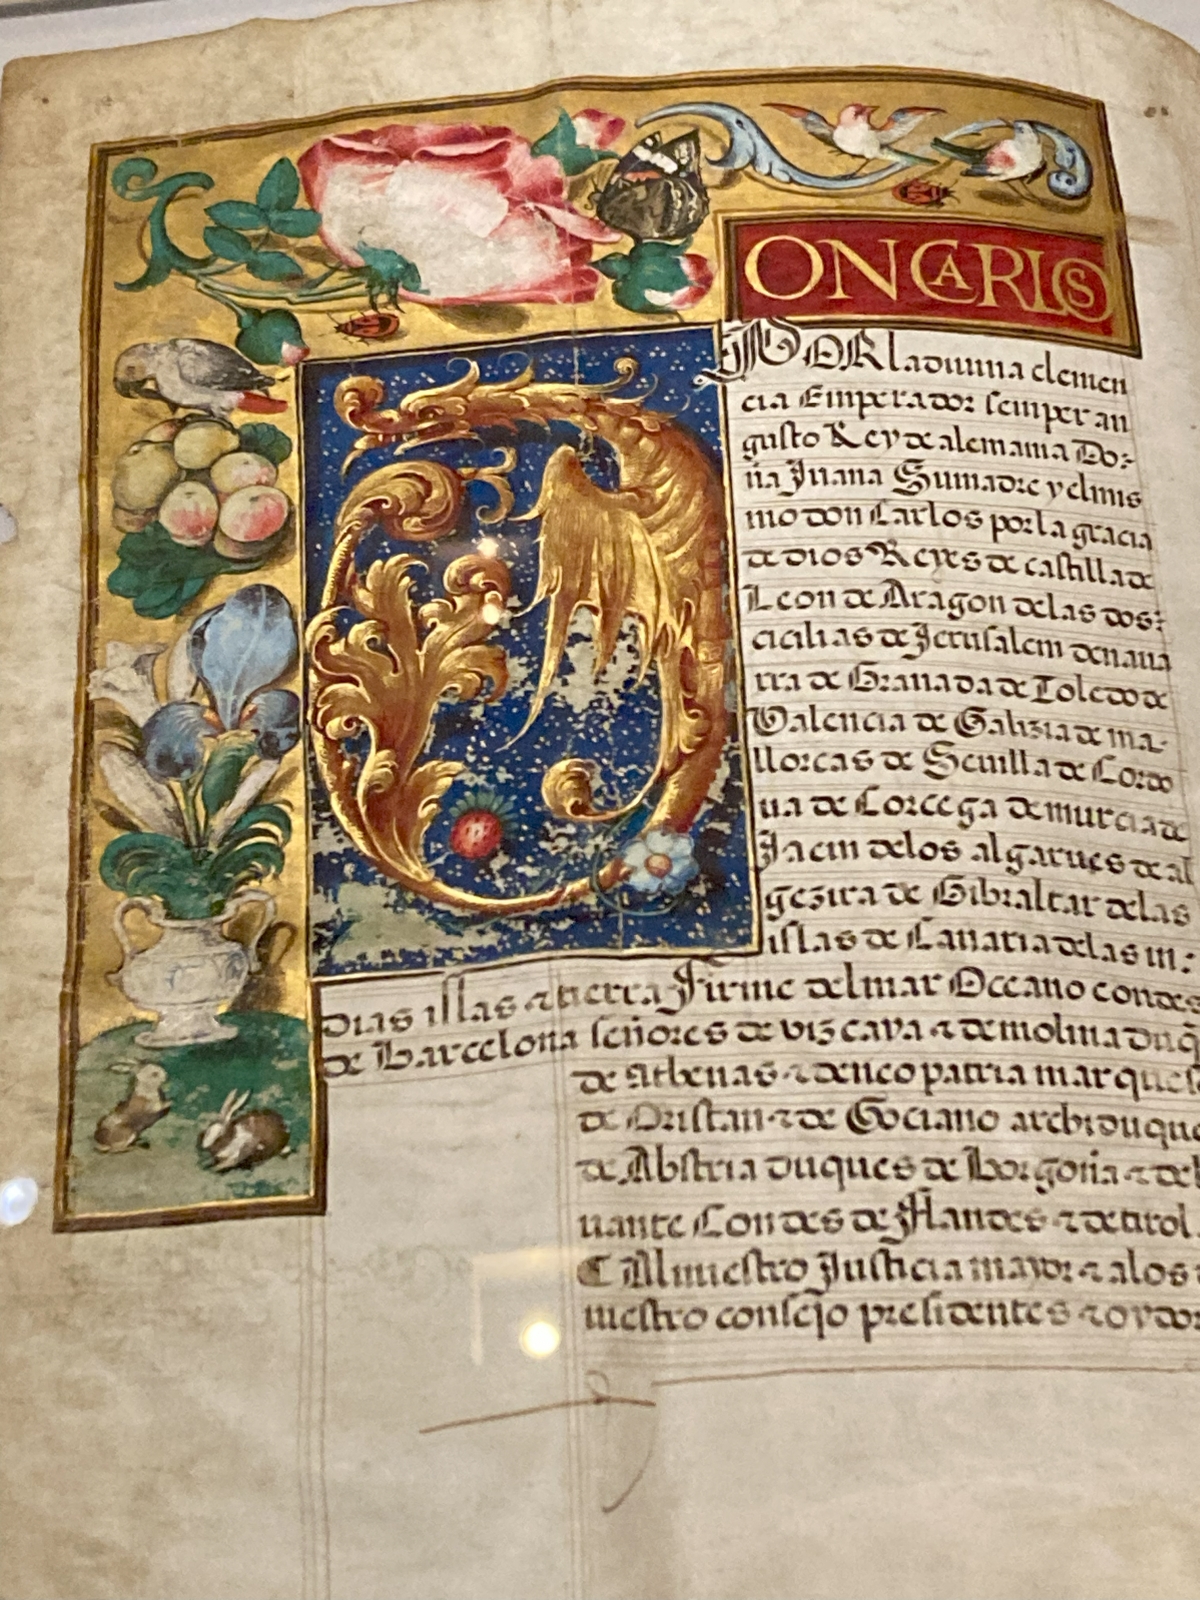 DON CARLOS
POR la diuina clemen
cia Emperador semper au
gusto Rey de alemania Do-
ña Juana Su madre y el mis
mo don Carlos por la gracia
de dios Reyes de castilla de
Leon de Aragon de las dos
cicilias de Jerusalem de naua
rra de Granada de Toledo de
Valencia de Galizia de ma-
llorcas de Seuilla de Cordo
ua de Corcega de murcia de
Jaen de los algarues de al
gezira de Gibraltar de las
islas de Canaria de las in-
dias islas & tierra Firme del mar Occano condes
de Barcelona señores de vizcaya & de molina duq̃
de Athenas & de neopatria marqueses
de Oristan & de Gociano archiduque
de Abstria duques de Borgoña & de b
uante Condes de Flandes & de tirol.
C Al nuestro Justicia mayor & a los
nuestro consejo presidentes & oydor